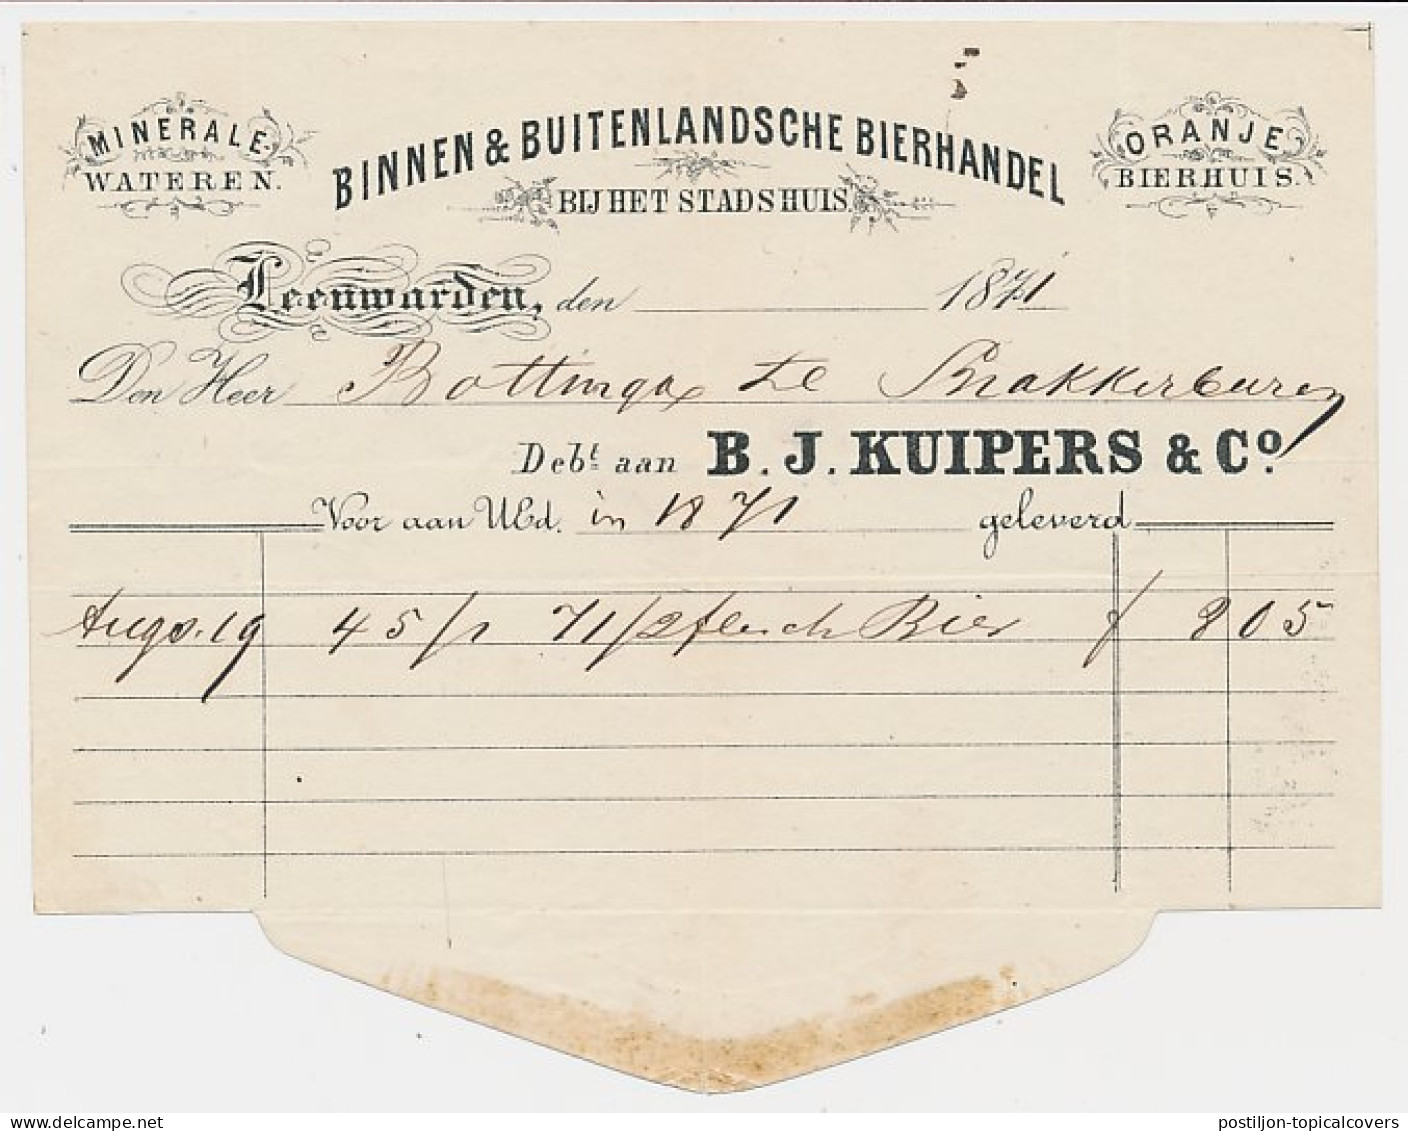 MINERALE
WATEREN.
BINNEN & BUITENLANDSCHE BIERHANDEL
BIJ HET STADSHUIS.
ORANJE
BIERHUIS.
Leeuwarden, den 1871
Den Heer Bottinga te Brakkerburen
Debt. aan B. J. KUIPERS & Co.
Voor aan UEd. in 1871 geleverd
Augs. 19 45/1 71/2 flesch Bier f 805
postiljon-topicalcovers